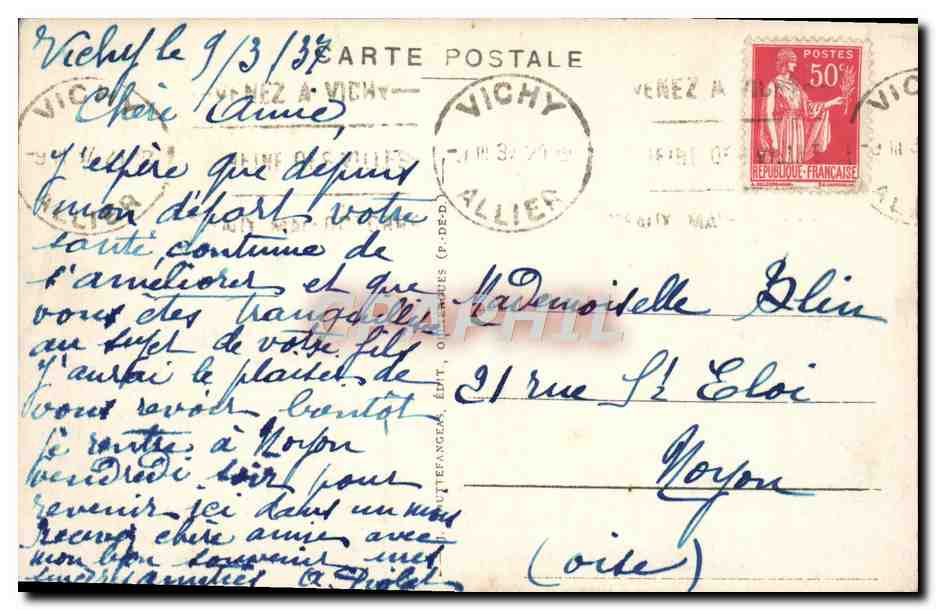 Vichy le 9/3/37
CARTE POSTALE
Chère Amie,
J'espère que depuis
mon départ votre
santé continue de
s'améliorer et que
vous êtes tranquille
au sujet de votre fils
J'aurai le plaisir de
vous revoir bientôt
je rentre à Noyon
vendredi soir pour
revenir ici dans un mois
recevez chère amie avec
mon bon souvenir mes
amitiés
VENEZ A VICHY
REINE DES VILLES
VICHY
ALLIER
VICHY
ALLIER
VENEZ A VICHY
POSTES
50c
REPUBLIQUE·FRANÇAISE
Mademoiselle Blin
21 rue St Eloi
Noyon
(oise)
ÉDIT.
(P.-DE-D.)
CPAPHIL